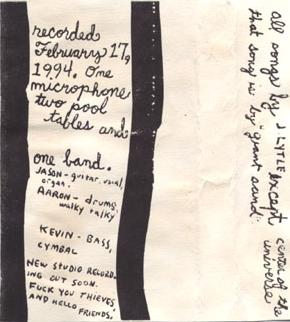 recorded
February 17,
1994. One
microphone
two pool
tables and
one band.
JASON- guitar, vocal,
organ.
AARON- drums,
walky talky
KEVIN- BASS,
CYMBAL
NEW STUDIO RECORD-
ING OUT SOON.
FUCK YOU THIEVES,
AND HELLO
FRIENDS.
all songs by J LYTLE except center of the universe
that song is by "giant sand."